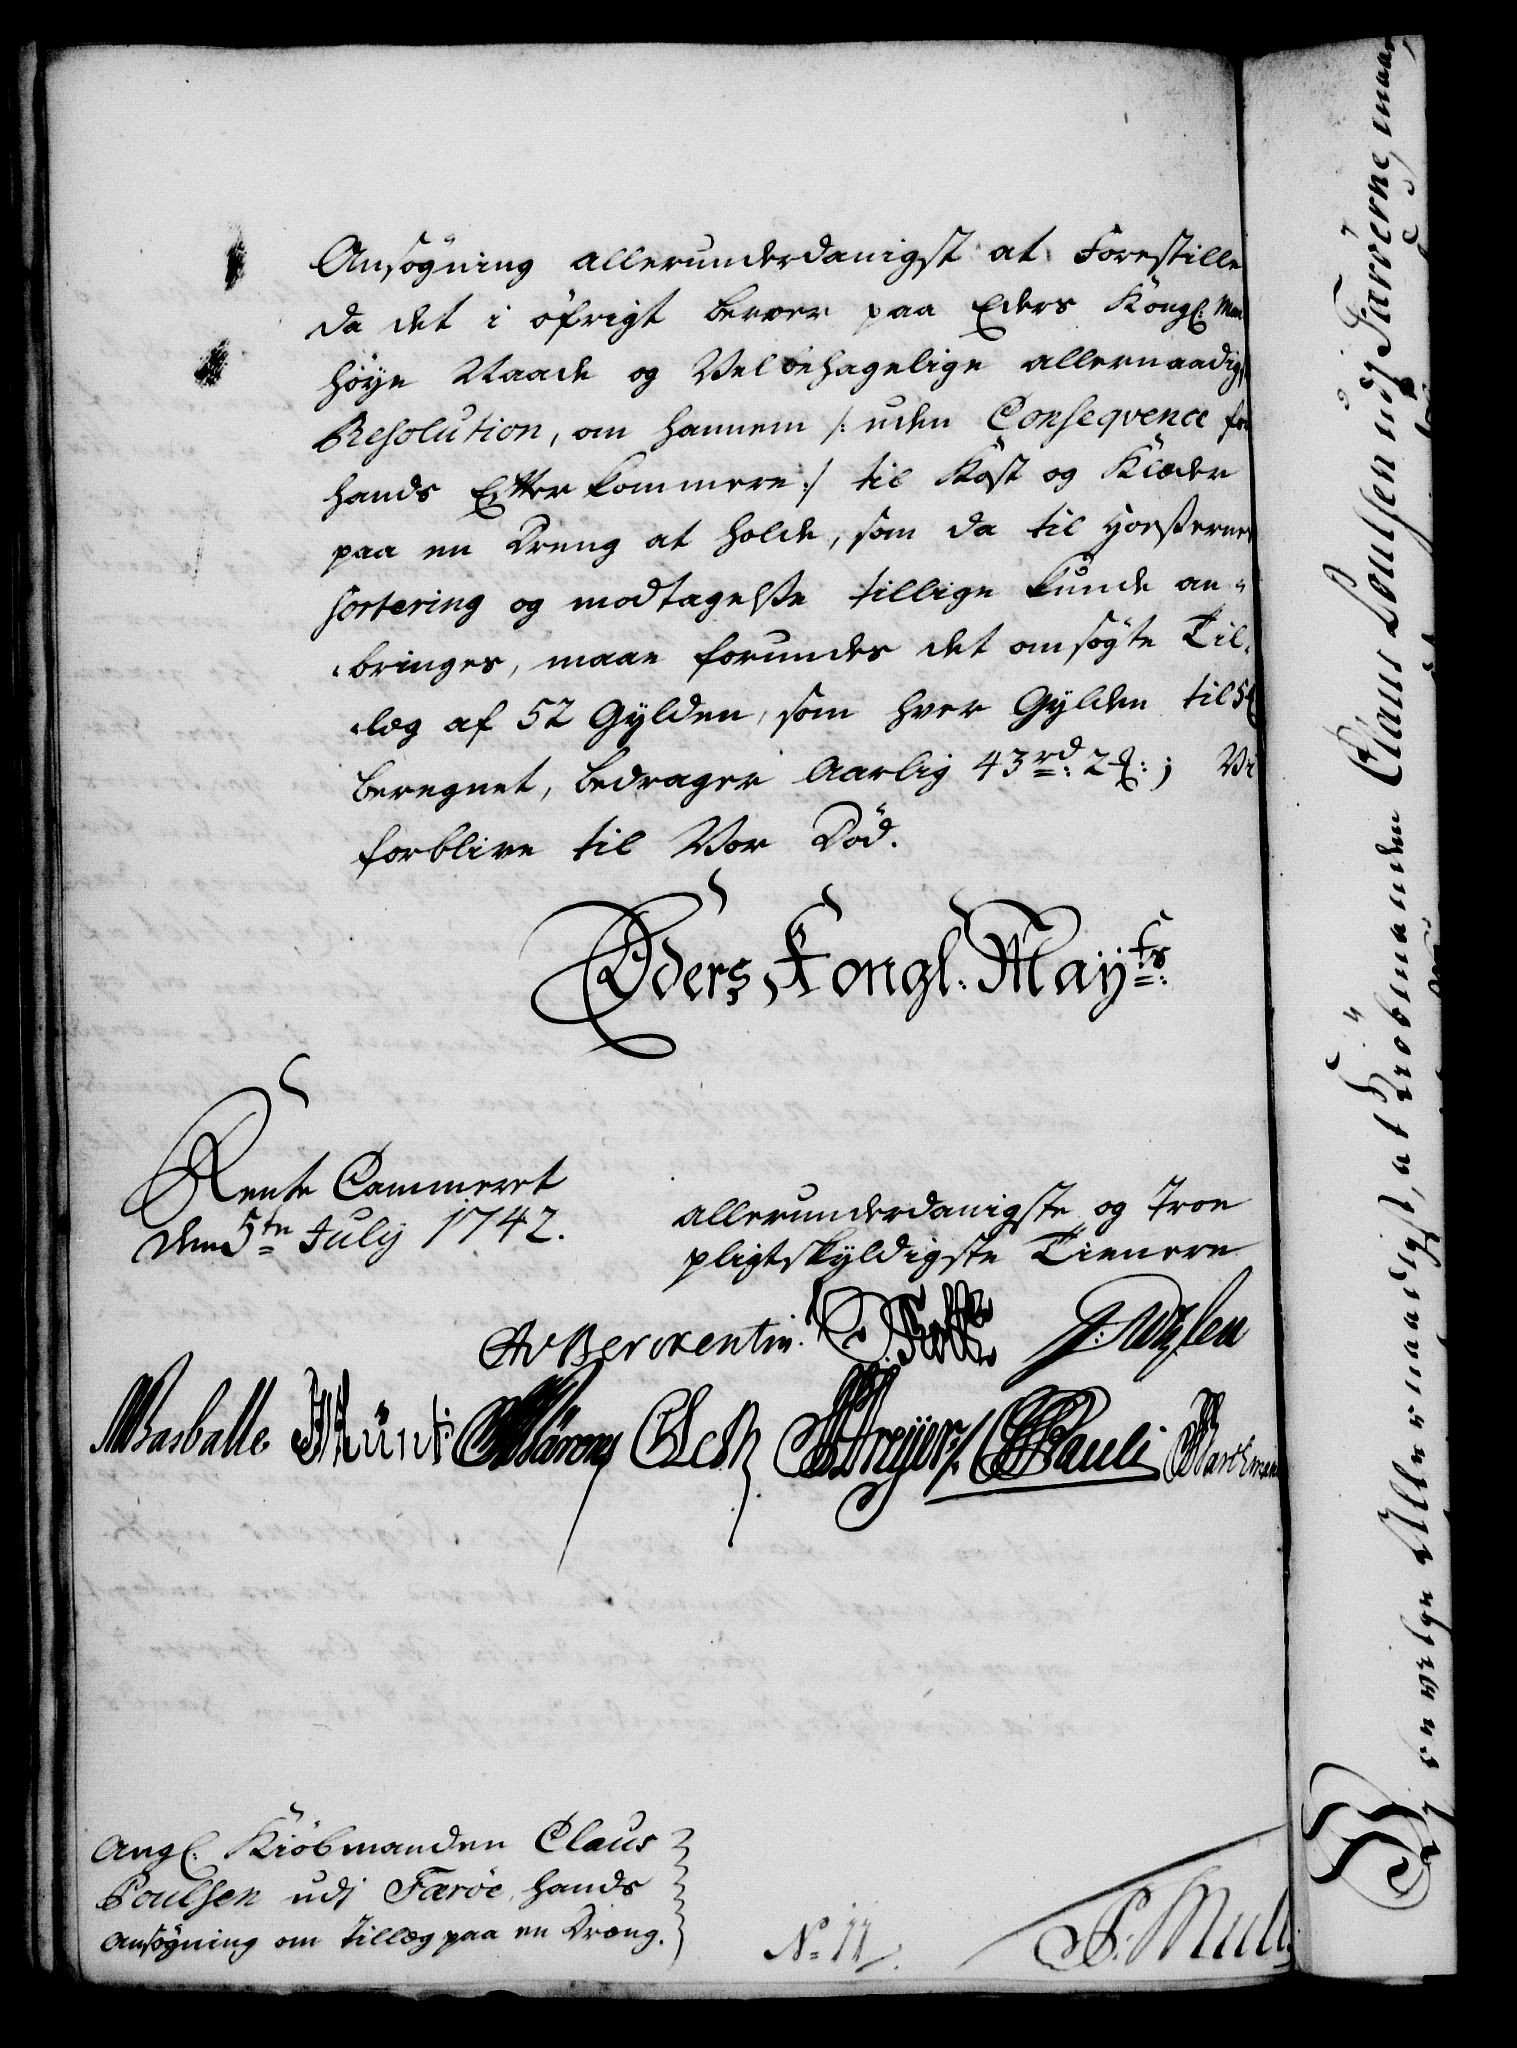 Ansögning allerunderdanigst at Forestille
da det i öfrigt beroer paa Eders Kongl: May
höye Naade og Velbehagelige allernaadigst
Resolution, om hannem /: uden Conseqvence for
hands Efterkommere :/ til Kost og Klæder
paa en Dreng at holde, som da til Hoeßernes
sortering og modtagelße tillige kunde an-
bringes, maae forundes det ansögte Til-
læg af 52 Gylden, som hver Gylden til
beregnet, bedrager Aarlig 43 rd: 2 ; Vi
forblive til Vor Död.
Eders Kongl. Mayts:
Rente Cammeret
den 5te July 1742.
allerunderdanigste og Troe
pligtskyldigste Tienere
Berckentin.
Basballe
Dreyer
Pauli
Ang: Kiöbmanden Claus
Poulsen udj Færöe, hands
ansögning om tillæg paa en Dræng.
No 11
Vj ere velge Allernaadigst, at Kiöbmanden Claus Poulsen udj Færöerne, maae